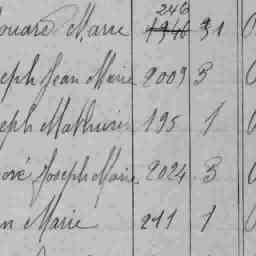 ouard Marie 246 ~~1946~~ 31
seph Jean Marie 2003 3
seph Mathurin 195 1
oré Joseph Marie 2024 3
an Marie 211 1